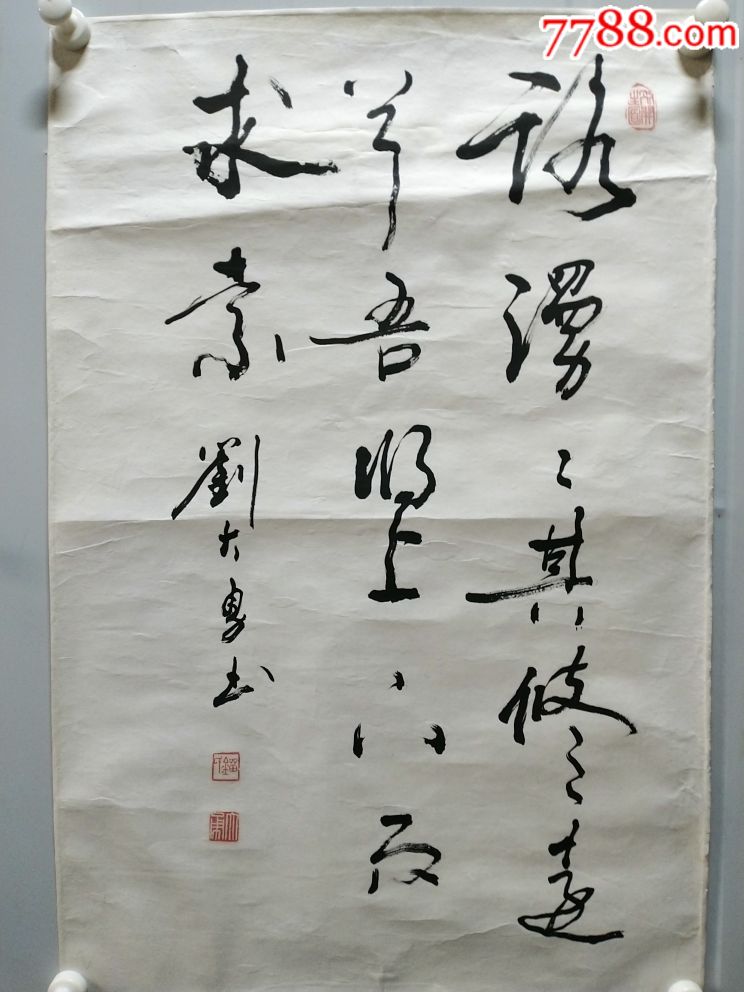 7788.com
路漫々其修遠
兮吾将上下而
求索 劉大勇书